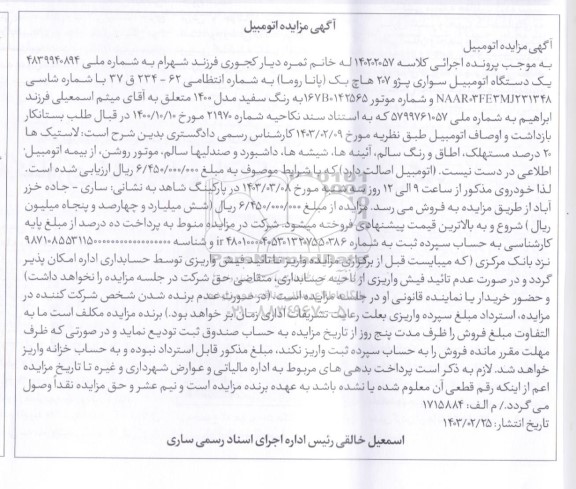 آگهی مزایده اتومبیل
آگهی مزایده اتومبیل
به موجب پرونده اجرائی کلاسه ۱۴۰۲۰۲۰۵۷ له خانم ثمره دیار کجوری فرزند شهرام به شماره ملی ۴۸۳۹۹۴۰۸۹۴
یک دستگاه اتومبیل سواری پژو ۲۰۷ هاچ بک (پانا روما) به شماره انتظامی ۶۲ - ۲۳۴ ق ۳۷ با شماره شاسی
NAAR۰۳FE۳MJ۲۳۱۳۴۸ و شماره موتور ۱۶۷B۰۱۴۲۵۶۵ به رنگ سفید مدل ۱۴۰۰ متعلق به آقای میثم اسمعیلی فرزند
ابراهیم به شماره ملی ۵۷۹۹۷۶۱۰۵۷ که به استناد سند نکاحیه شماره ۲۱۹۷۰ مورخ ۱۴۰۰/۱۰/۱۰ در قبال طلب بستانکار
بازداشت و اوصاف اتومبیل طبق نظریه مورخ ۱۴۰۳/۰۲/۰۹ کارشناس رسمی دادگستری بدین شرح است: لاستیک ها
۲۰ درصد مستهلک، اطاق و رنگ سالم، آئینه ها، شیشه ها، داشبورد و صندلیها سالم، موتور روشن، از بیمه اتومبیل؛
اطلاعی در دست نیست. (اتومبیل اصالت دارد) که با شرایط موصوف به مبلغ ۶/۴۵۰/۰۰۰/۰۰۰ ریال ارزیابی شده است.
لذا خودروی مذکور از ساعت ۹ الی ۱۲ روز سه شنبه مورخ ۱۴۰۳/۰۳/۰۸ در پارکینگ شاهد به نشانی: ساری - جاده خزر
آباد از طریق مزایده به فروش می رسد. مزایده از مبلغ ۶/۴۵۰/۰۰۰/۰۰۰ ریال (شش میلیارد و چهارصد و پنجاه میلیون
ریال ) شروع و به بالاترین قیمت پیشنهادی فروخته میشود. شرکت در مزایده منوط به پرداخت ده درصد از مبلغ پایه
کارشناسی به حساب سپرده ثبت به شماره ir ۴۸۰۱۰۰۰۰۴۰۵۳۰۱۳۳۰۷۵۵۰۳۸۶ و شناسه
نزد بانک مرکزی (که میبایست قبل از برگزاری مزایده واریز تا تائید فیش واریزی توسط حسابداری اداره امکان پذیر
گردد و در صورت عدم تائید فیش واریزی از ناحیه حسابداری، متقاضی حق شرکت در جلسه مزایده را نخواهد داشت)
و حضور خریدار یا نماینده قانونی او در جلسه مزایده است. (در صورت عدم برنده شدن شخص شرکت کننده در
مزایده، استرداد مبلغ سپرده واریزی بعلت رعایت تشریفات اداری زمان بر خواهد بود.) برنده مزایده مکلف است ما به
التفاوت مبلغ فروش را ظرف مدت پنج روز از تاریخ مزایده به حساب صندوق ثبت تودیع نماید و در صورتی که ظرف
مهلت مقرر مانده فروش را به حساب سپرده ثبت واریز نکند، مبلغ مذکور قابل استرداد نبوده و به حساب خزانه واریز
خواهد شد. لازم به ذکر است پرداخت بدهی های مربوط به اداره مالیاتی و عوارض شهرداری و غیره تا تاریخ مزایده
اعم از اینکه رقم قطعی آن معلوم شده یا نشده باشد به عهده برنده مزایده است و نیم عشر و حق مزایده نقداً وصول
می گردد./ م الف: ۱۷۱۵۸۸۴
تاریخ انتشار: ۱۴۰۳/۰۲/۲۵
اسمعیل خالقی رئیس اداره اجرای اسناد رسمی ساری